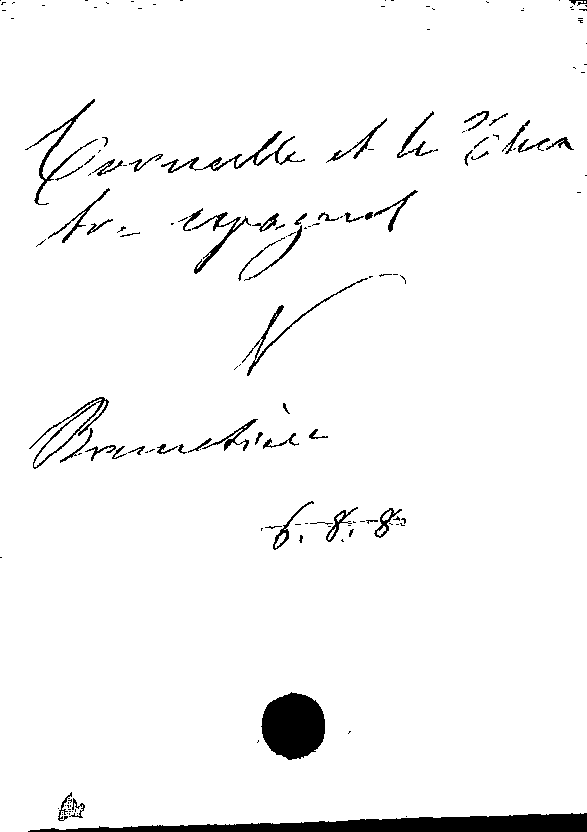 Corneille et le Théa
tre espagnol
V
Brunetière
6. 8. 8